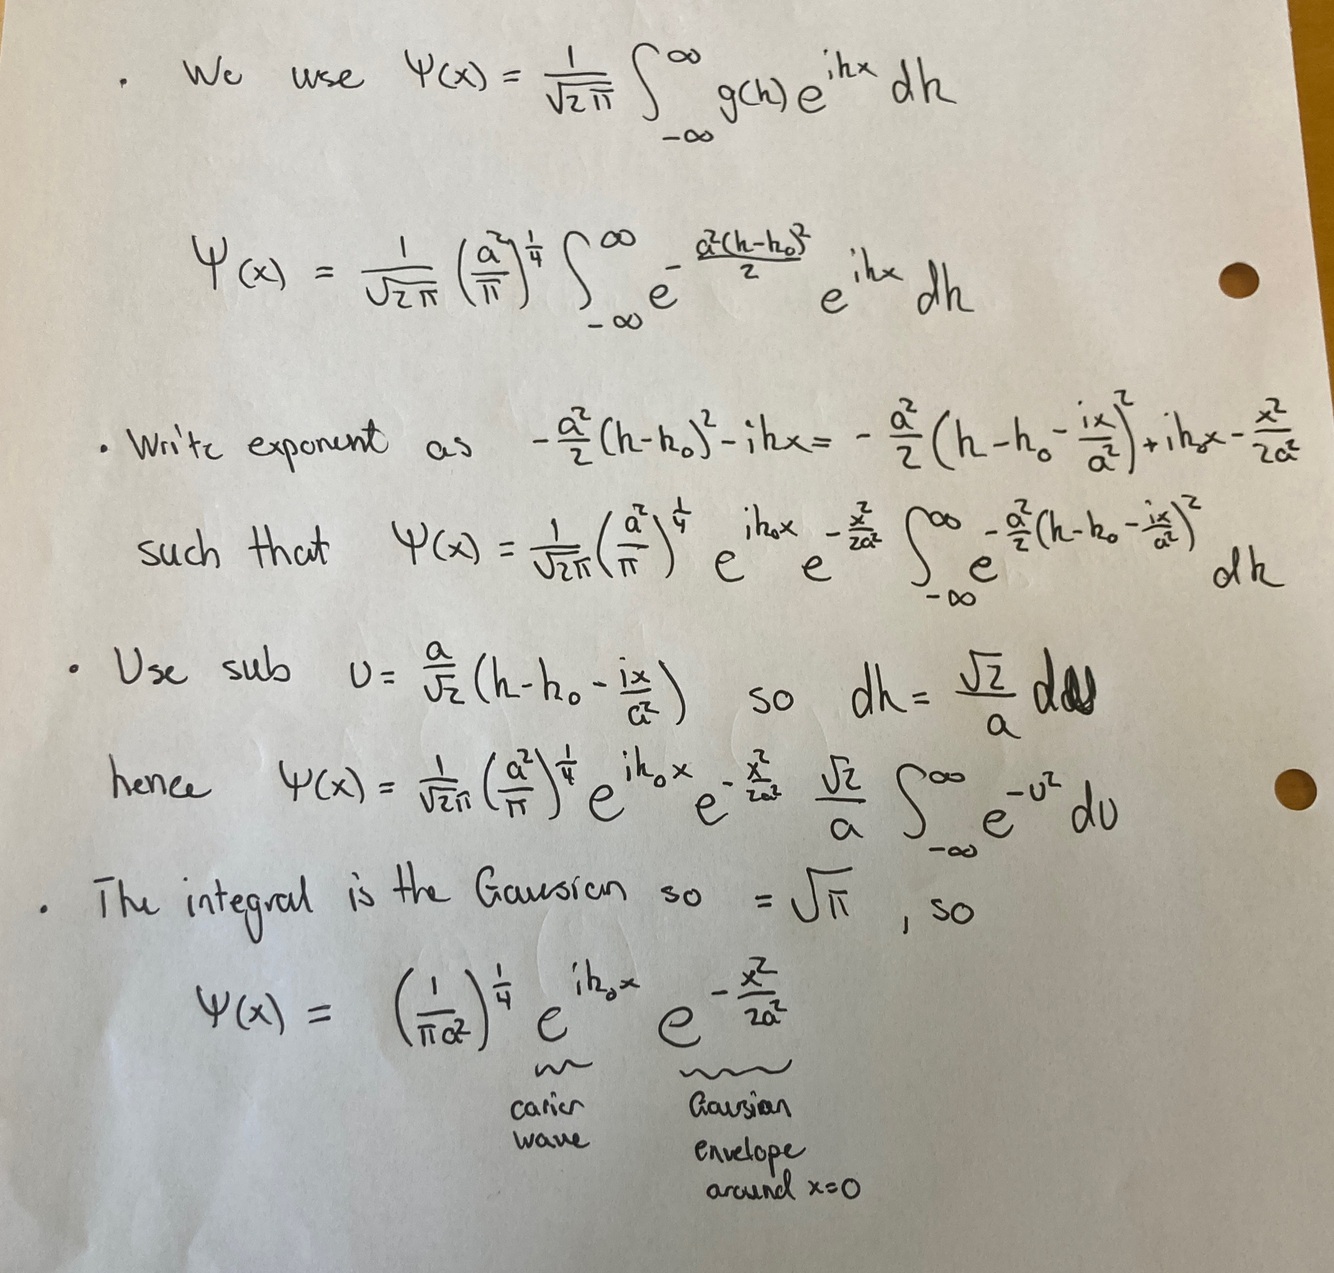 · We use Ψ(x) = 1/√2π ∫_{-∞}^{∞} g(k) e^{ikx} dk
Ψ(x) = 1/√2π (a²/π)^{1/4} ∫_{-∞}^{∞} e^{-a²(k-k₀)²/2} e^{ikx} dk
· Write exponent as -a²/2 (k-k₀)² - ikx = -a²/2 (k-k₀ - ix/a²)² + ik₀x - x²/2a²
such that Ψ(x) = 1/√2π (a²/π)^{1/4} e^{ik₀x} e^{-x²/2a²} ∫_{-∞}^{∞} e^{-a²/2 (k-k₀ - ix/a²)²} dk
· Use sub u = a/√2 (k-k₀ - ix/a²) so dk = √2/a du
hence Ψ(x) = 1/√2π (a²/π)^{1/4} e^{ik₀x} e^{-x²/2a²} √2/a ∫_{-∞}^{∞} e^{-u²} du
· The integral is the Gaussian so = √π , so
Ψ(x) = (1/πa²)^{1/4} e^{ik₀x} e^{-x²/2a²}
carier Gausian
wave envelope
around x=0